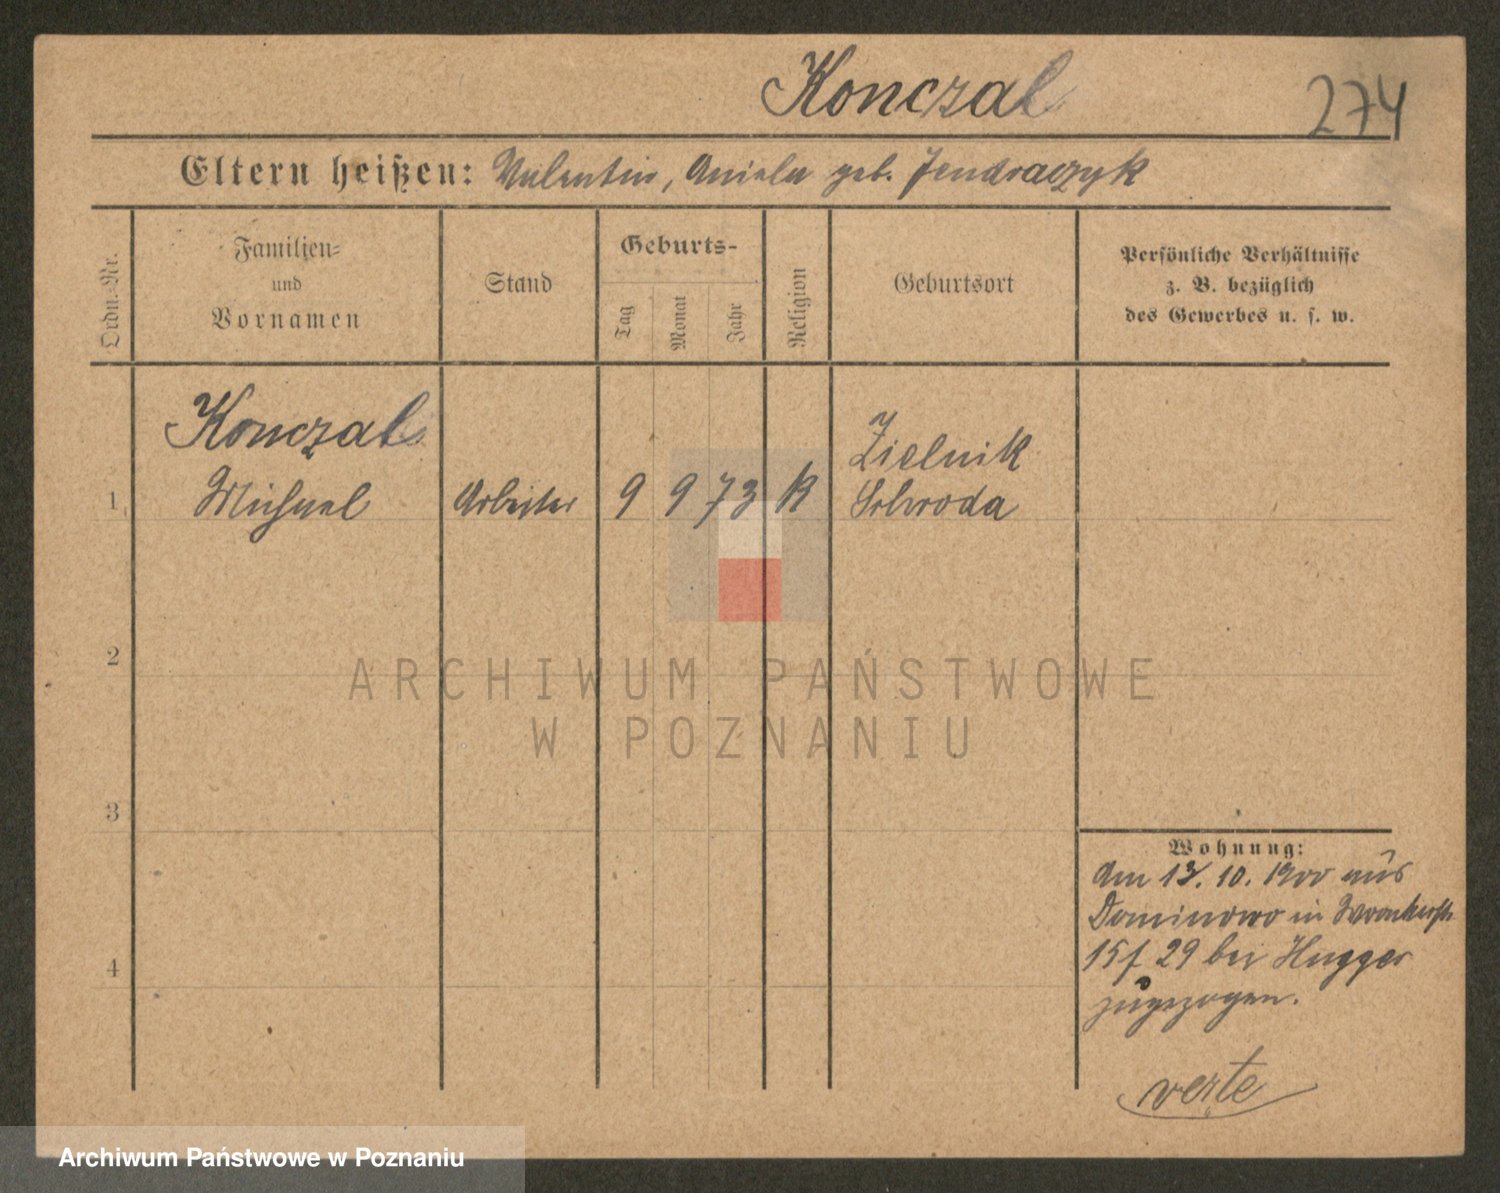 Konczal
274
Eltern heißen: Valentin, Aniela geb. Jendraczyk
Ordn.-Nr.
Familien-
und
Vornamen
Stand
Geburts-
Tag
Monat
Jahr
Religion
Geburtsort
Persönliche Verhältnisse
z. B. bezüglich
des Gewerbes u. s. w.
Konczal
1 Michael Arbeiter 9 9 73 k
Zielnik
Schroda
2
3
4
Wohnung:
Am 13. 10. 1900 aus
Dominowo in Wronkerstr.
15 f 29 bei Hugger
zugezogen.
verte
ARCHIWUM PAŃSTWOWE
W POZNANIU
Archiwum Państwowe w Poznaniu